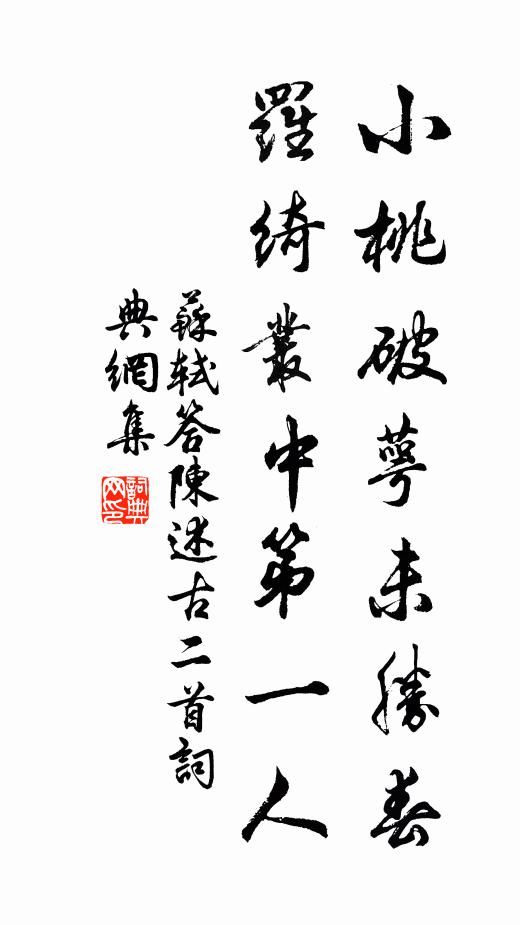 小桃破萼未勝春
羅綺叢中第一人
蘇軾答陳述古二首詞
典網集
詞典网印